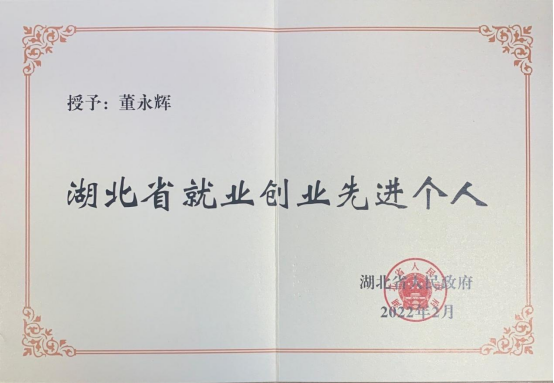 授予：董永辉
湖北省就业创业先进个人
湖北省人民政府
2022年2月